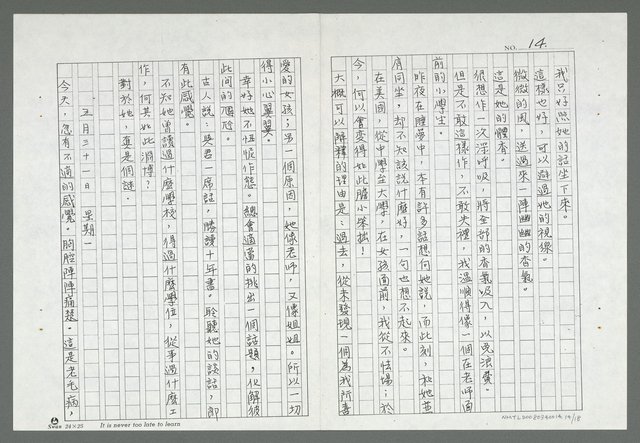 NO. 14.
我只好照她的話坐下來。
這樣也好，可以避過她的視線。
微微的風，送過來一陣幽幽的香氣。
這是她的體香。
很想作一次深呼吸，將全部的香氣吸入，以免浪費。
但是不敢這樣作，不敢失禮，我溫順得像一個在老師面
前的小學生。
昨夜在睡夢中，本有許多話想向她說，而此刻，和她並
肩同坐，卻不知該說什麼好，一句也想不起來。
在美國，從中學至大學，在女孩面前，我從不怯場；於
今，何以會變得如此膽小笨拙！
大概可以解釋的理由是：過去，從未發現一個為我所喜
愛的女孩；另一個原因，她像老師，又像姐姐。所以一切
得小心翼翼。
幸好她不怪忸怩作態。總會適當的挑出一個話題，化解彼
此間的尷尬。
古人說：與君一席話，勝讀十年書。聆聽她的談話，即
有此感覺。
不知她曾讀過什麼學校，得過什麼學位，從事過什麼工
作，何其如此淵博？
對於她，真是個謎。
五月三十一日 星期一
今天，忽有不適的感覺。胸腔陣陣痛楚。這是老毛病，
Swan 24×25 It is never too late to learn
NMTL20080340014 14/18